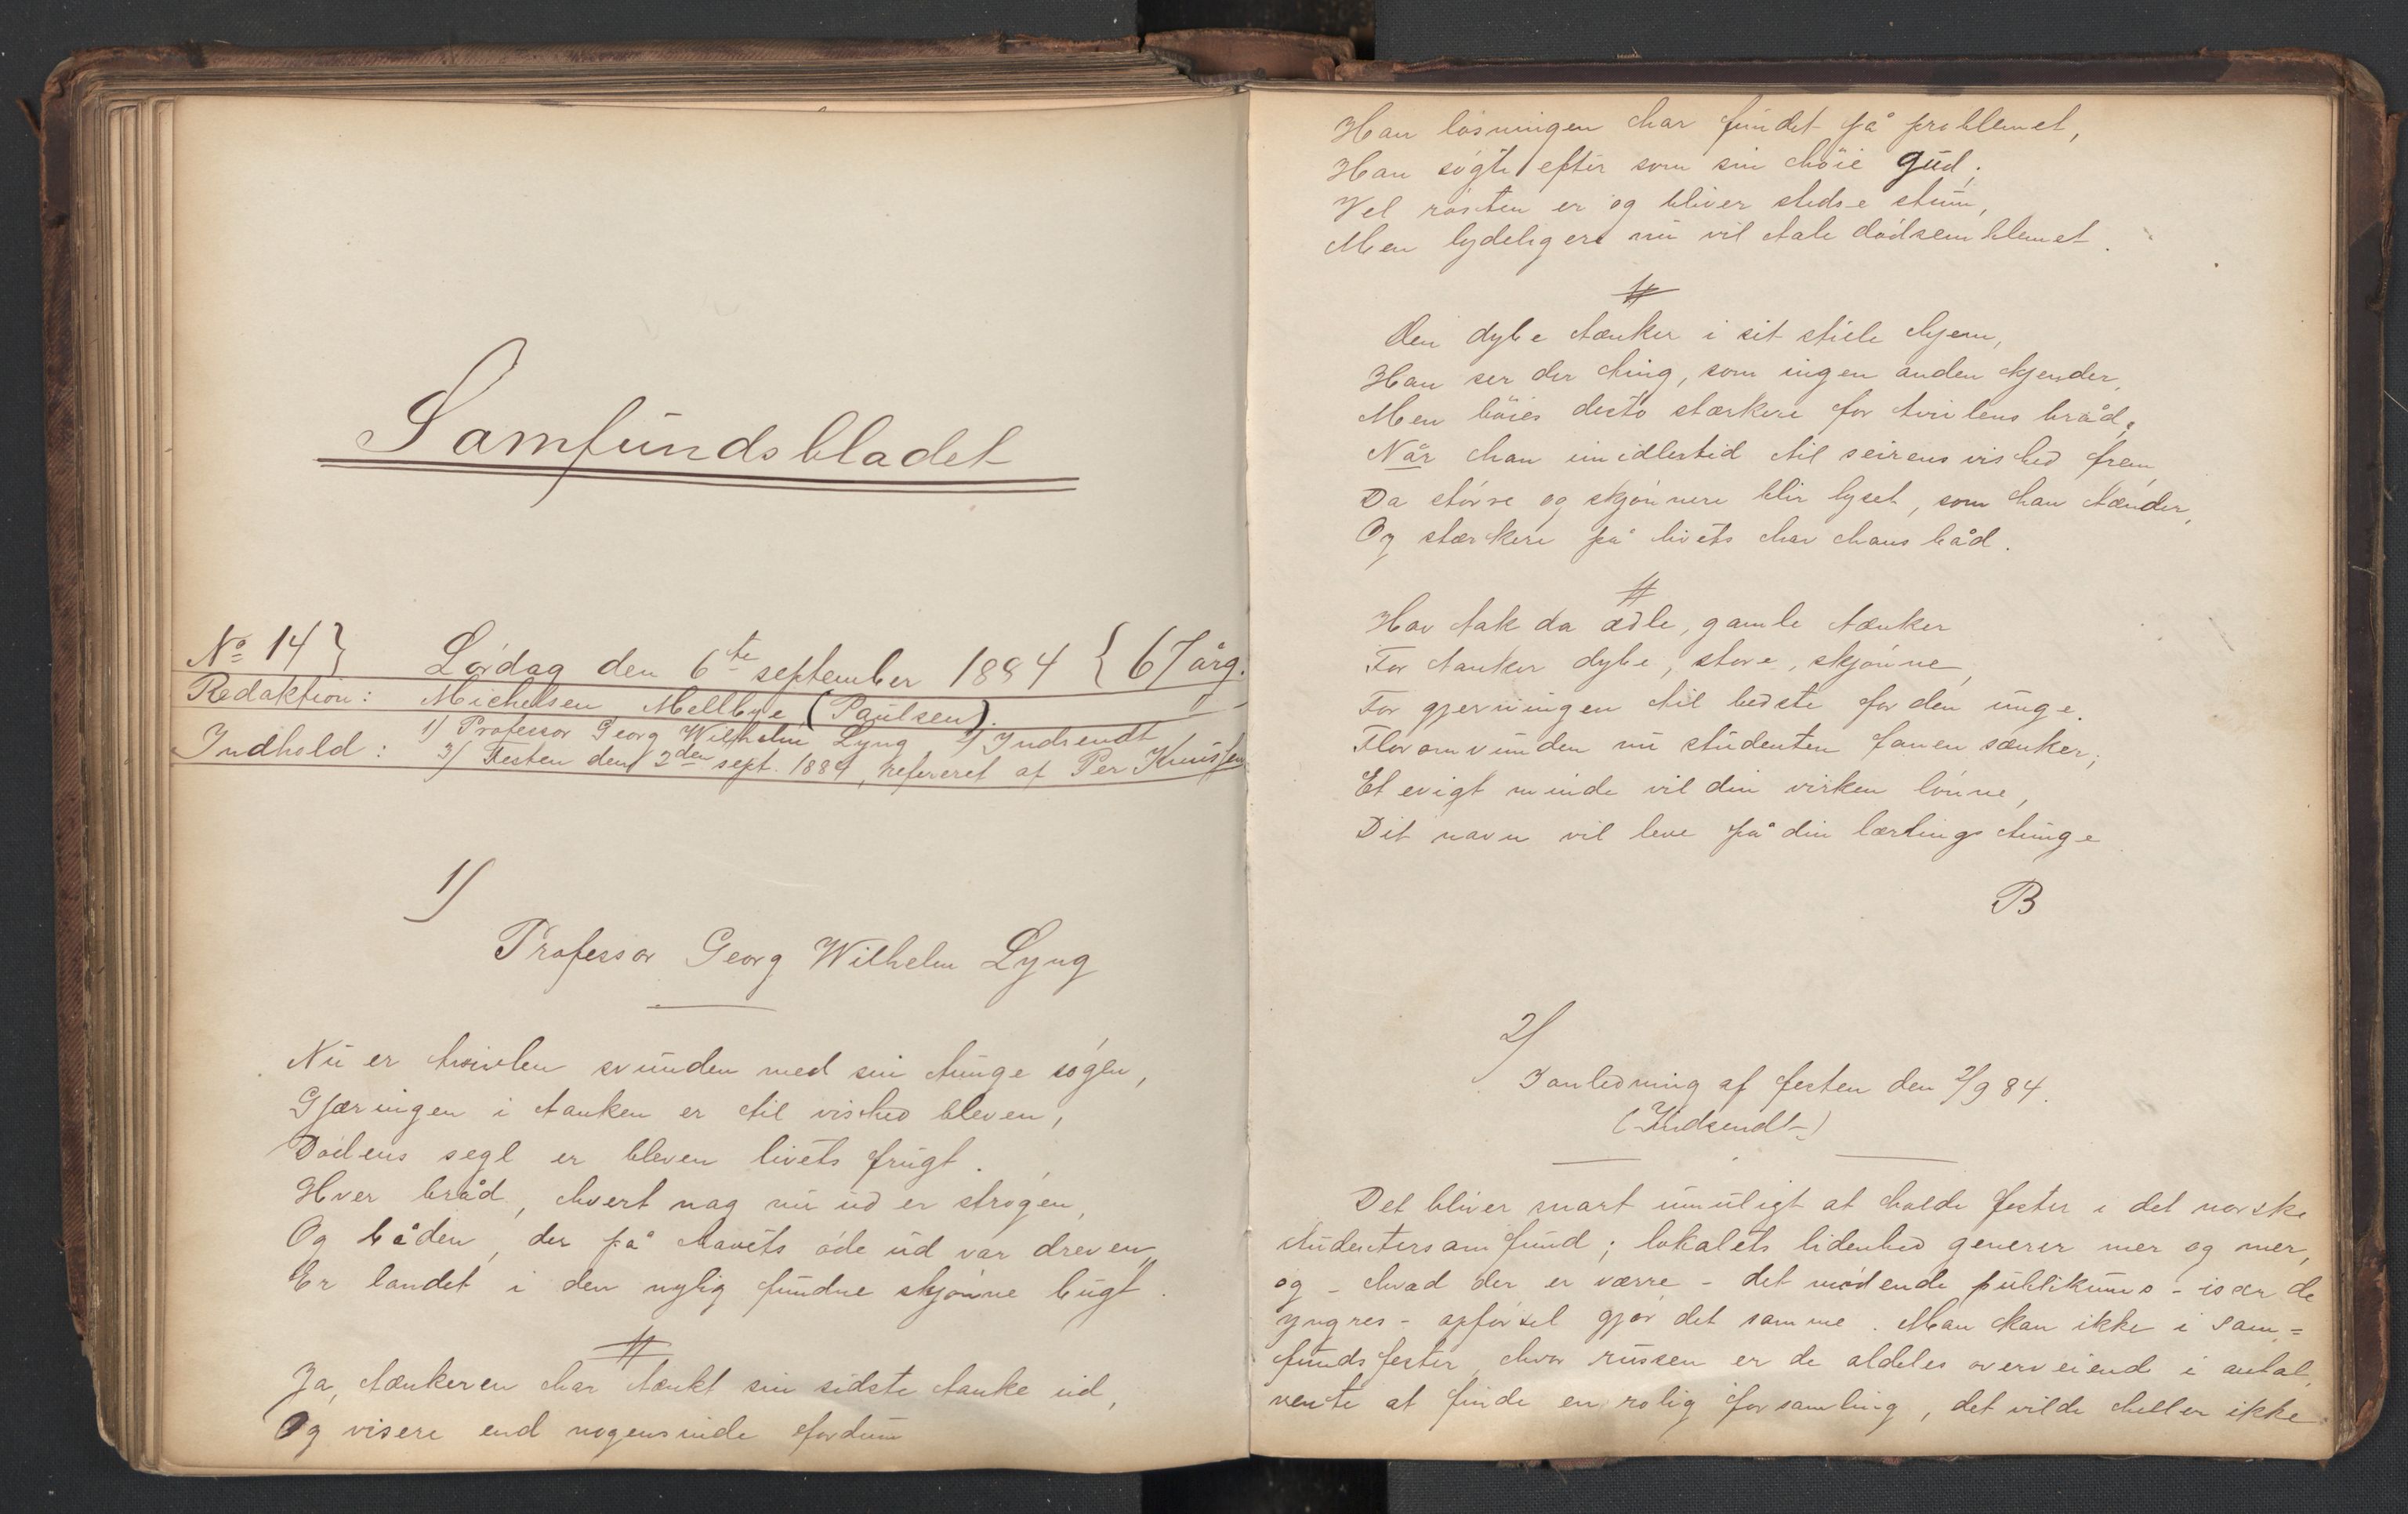 Samfundsbladet
No 14} Lørdag den 6te september 1884 {67 årg.
Redaktion: Michelsen Mellbye (Paulsen).
Indhold: 1) Professor Georg Wilhelm Lyng, 2) Indsendt
3) Festen den 2den sept. 1884, refereret af Per
1)
Professor Georg Wilhelm Lyng
Nu er tvivlen svunden med sin tunge søgen,
Gjæringen i tanken er til vished bleven,
Dødens segl er bleven livets frugt.
Hver bråd, hvert nag nu ud er strøgen,
Og båden, der på havets øde ud var dreven,
Er landet i den nylig fundne skjønne bugt.
#
Ja, tænkeren har tænkt sin sidste tanke ud,
Og visere end nogensinde fordum
Han løsningen har fundet på problemet,
Han søgte efter som sin høie Gud;
Vel røsten er og bliver stedse stum,
Men lydeligere nu vil tale dødsemblemet.
#
Den dybe tænker i sit stille hjem,
Han ser der ting, som ingen anden kjender,
Men bøies desto stærkere for tvivlens bråd,
Når han imidlertid til seirens vished frem
Da større og skjønnere blir lyset, som han tænder,
Og stærkere på livets hav hans båd.
#
Hav tak da ædle, gamle tænker
For tanker dybe, store, skjønne,
For gjerningen til bedste for den unge.
Florømvunden nu studenten fanen sænker;
Et evigt minde vil din virken lønne,
Dit navn vil leve på din lærlings tunge
B
2)
I anledning af festen den 2/9 84.
(Indsendt)
Det bliver snart umuligt at holde fester i det norske
studentersamfund; lokalets lidenhed generer mer og mer,
og - hvad der er værre - det mødende publikums - især de
yngres - opførsel gjør det samme. Man kan ikke i sam=
fundsfester, hvor russen er de aldeles overveiende i antal,
vente at finde en rolig forsamling, det vilde heller ikke